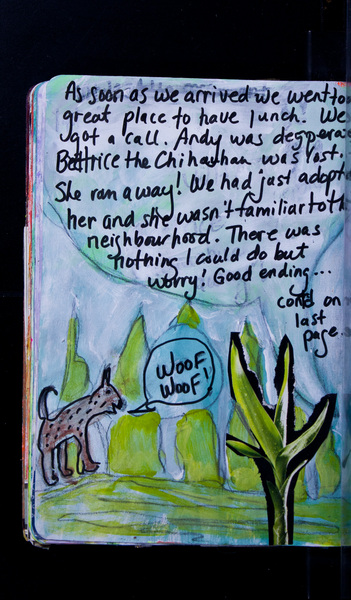 As soon as we arrived we went to
great place to have lunch. We
got a call. Andy was despera
Beatrice the Chihauhau was lost.
She ran away! We had just adopt
her and she wasn't familiar to th
neighbourhood. There was
nothing I could do but
worry! Good ending...
cont'd on
last
page.
WOOF
WOOF!